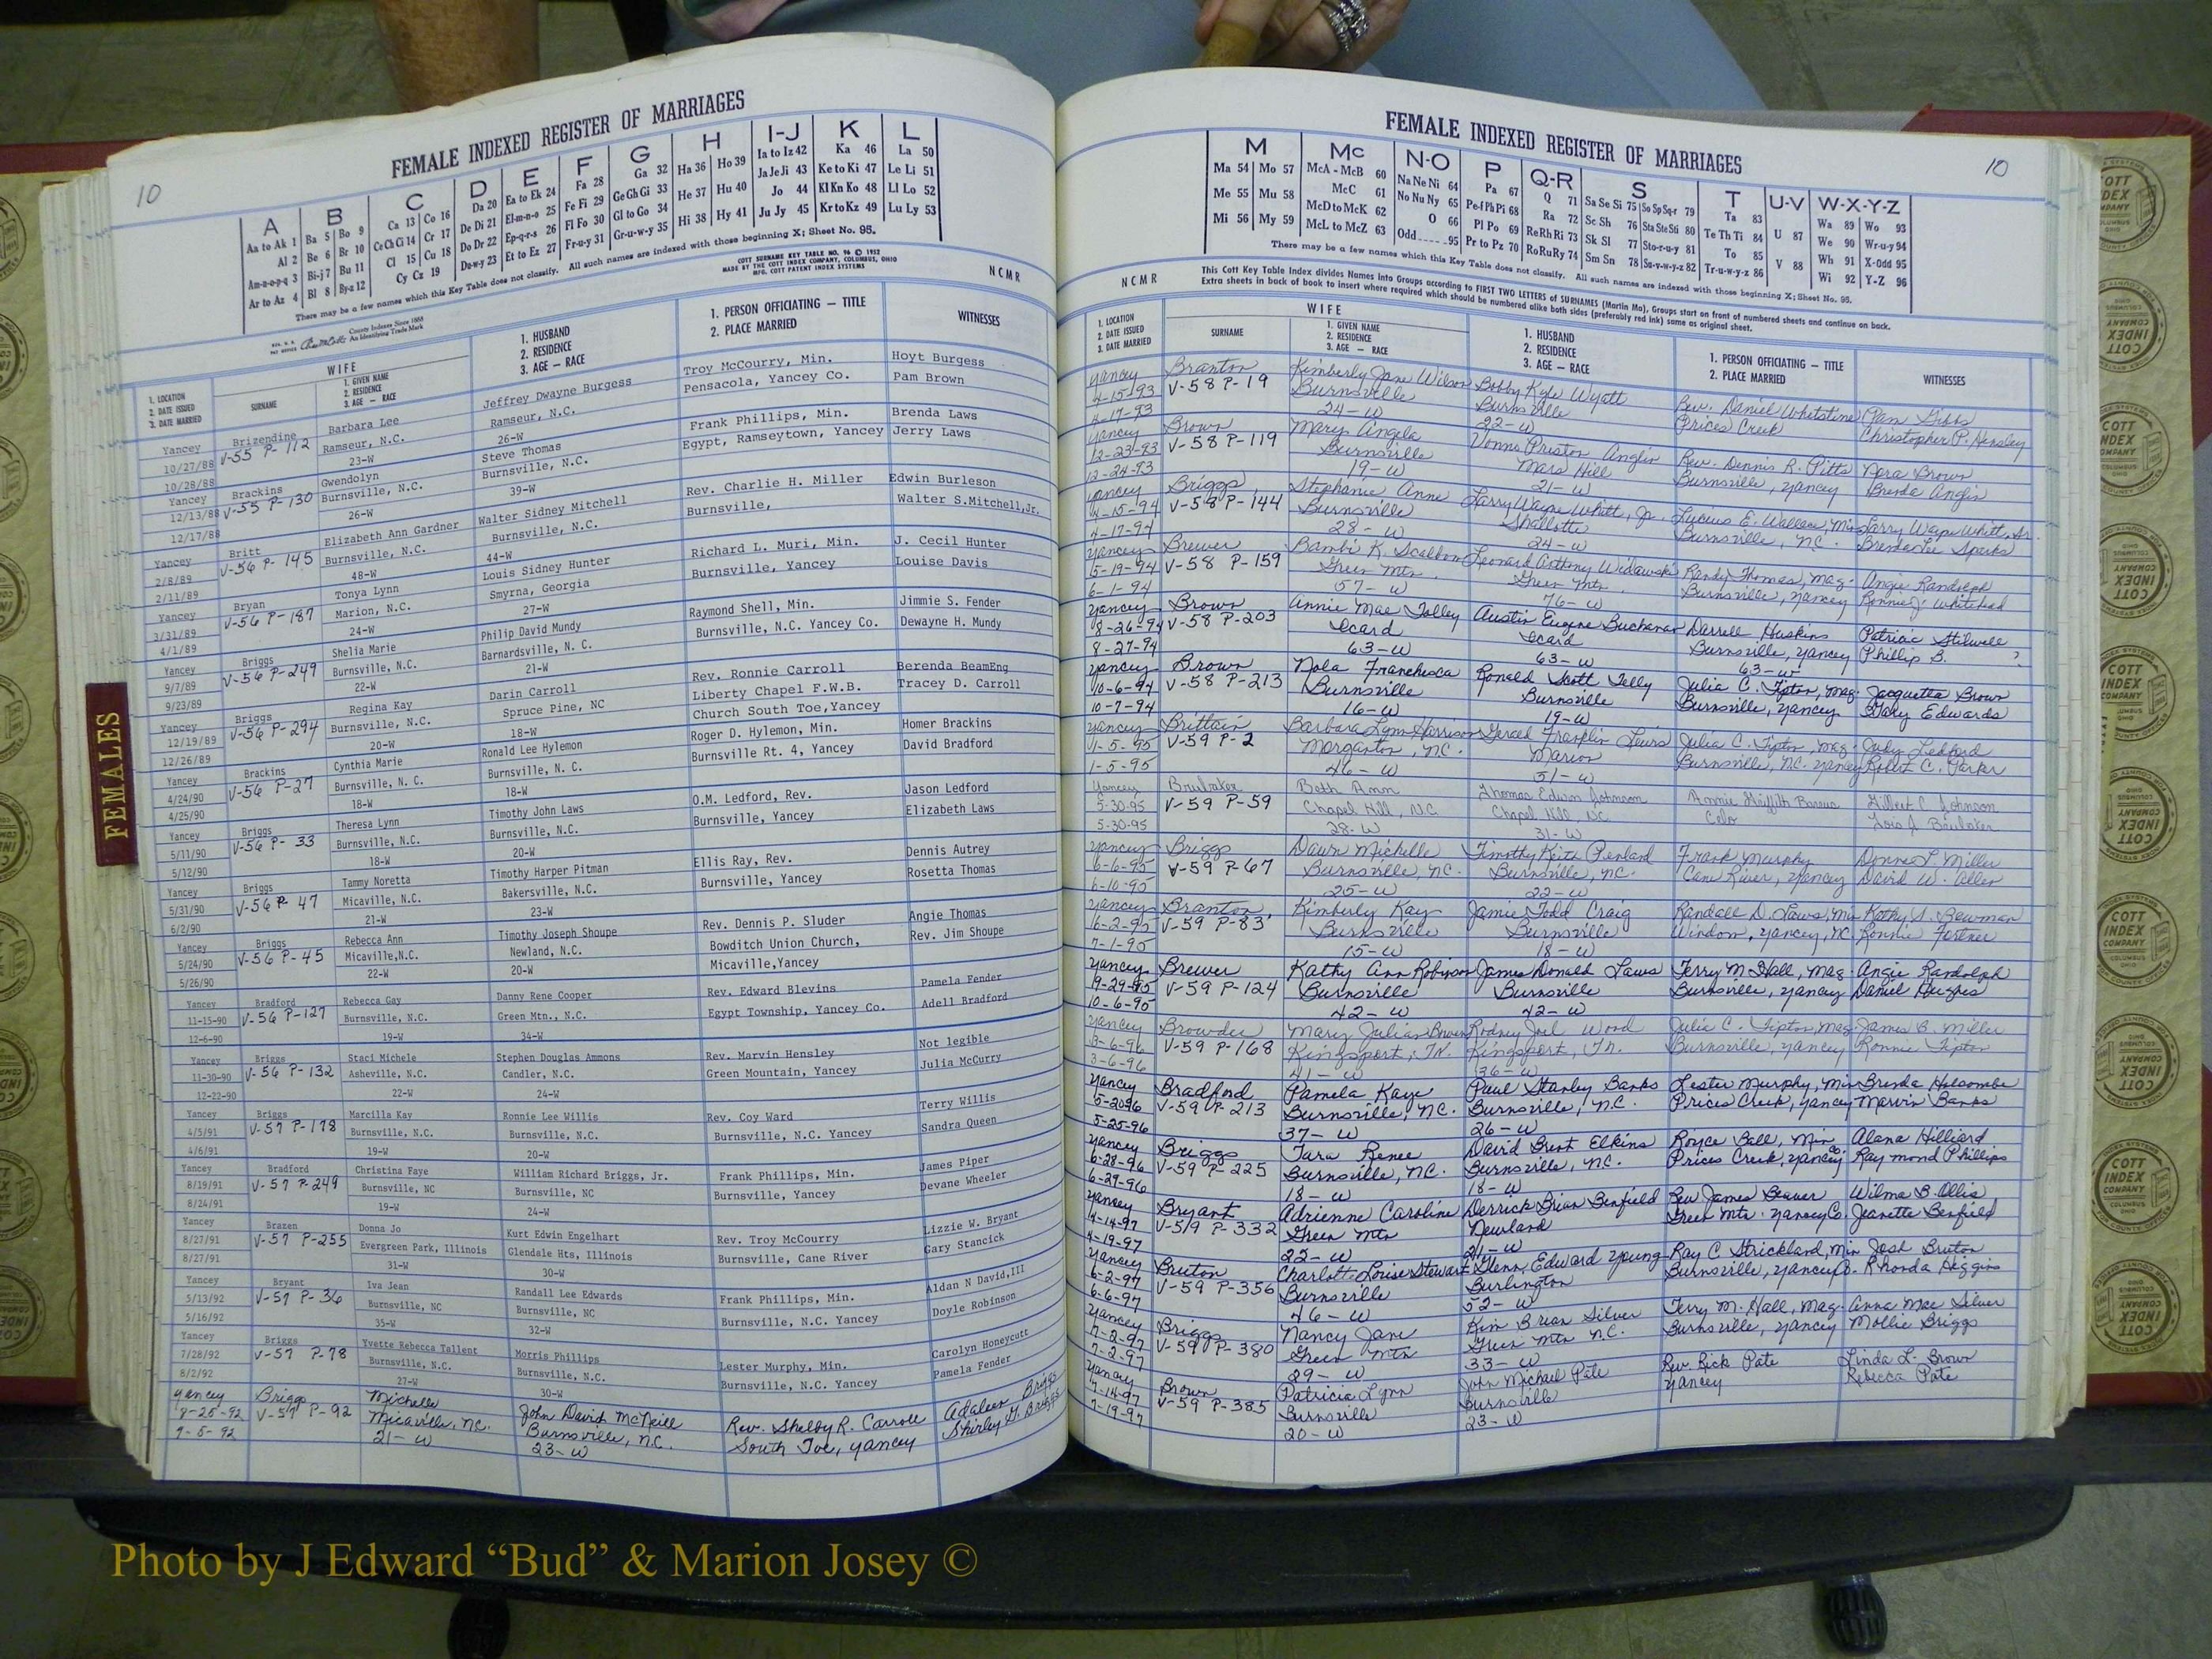 10
FEMALE INDEXED REGISTER OF MARRIAGES
A B C D E F G H I-J K L
Aa to Ak 1 Ba 5 Bo 9 Ca 13 Co 16 Da 20 Ea to Ek 24 Fa 28 Ga 32 Ha 36 Ho 39 Ia to Iz 42 Ka 46 La 50
Al 2 Be 6 Br 10 Ce Ch Ci 14 Cr 17 De Di 21 El-m-n-o 25 Fe Fi 29 Ge Gh Gi 33 He 37 Hu 40 Ja Je Ji 43 Ke to Ki 47 Le Li 51
Am-n-o-p-q 3 Bi-j 7 Bu 11 Cl 15 Cu 18 Do Dr 22 Ep-q-r-s 26 Fl Fo 30 Gl to Go 34 Hi 38 Hy 41 Jo 44 Kl Kn Ko 48 Ll Lo 52
Ar to Az 4 Bl 8 By-z 12 Cy Cz 19 Du-w-y 23 Et to Ez 27 Fr-u-y 31 Gr-u-w-y 35 Ju Jy 45 Kr to Kz 49 Lu Ly 53
There may be a few names which this Key Table does not classify. All such names are indexed with those beginning X; Sheet No. 95.
COTT SURNAME KEY TABLE NO. 96 © 1952
MADE BY THE COTT INDEX COMPANY, COLUMBUS, OHIO
MFG. COTT PATENT INDEX SYSTEMS
County Indexes Since 1888
An Identifying Trade Mark
NCMR
1. LOCATION
2. DATE ISSUED
3. DATE MARRIED
WIFE
SURNAME
1. GIVEN NAME
2. RESIDENCE
3. AGE — RACE
1. HUSBAND
2. RESIDENCE
3. AGE — RACE
1. PERSON OFFICIATING — TITLE
2. PLACE MARRIED
WITNESSES
Yancey Brizendine Barbara Lee Jeffrey Dwayne Burgess Troy McCourry, Min. Hoyt Burgess
10/27/88 V-55 P-112 Ramseur, N.C. Ramseur, N.C. Pensacola, Yancey Co. Pam Brown
10/28/88 23-W 26-W
Yancey Brackins Gwendolyn Steve Thomas Frank Phillips, Min. Brenda Laws
12/13/88 V-55 P-130 Burnsville, N.C. Burnsville, N.C. Egypt, Ramseytown, Yancey Jerry Laws
12/17/88 26-W 39-W
Yancey Britt Elizabeth Ann Gardner Walter Sidney Mitchell Rev. Charlie H. Miller Edwin Burleson
2/8/89 V-56 P-145 Burnsville, N.C. Burnsville, N.C. Burnsville, Walter S.Mitchell,Jr.
2/11/89 48-W 44-W
Yancey Bryan Tonya Lynn Louis Sidney Hunter Richard L. Muri, Min. J. Cecil Hunter
3/31/89 V-56 P-187 Marion, N.C. Smyrna, Georgia Burnsville, Yancey Louise Davis
4/1/89 24-W 27-W
Yancey Briggs Shelia Marie Philip David Mundy Raymond Shell, Min. Jimmie S. Fender
9/7/89 V-56 P-249 Burnsville, N.C. Barnardsville, N. C. Burnsville, N.C. Yancey Co. Dewayne H. Mundy
9/23/89 22-W 21-W
Yancey Briggs Regina Kay Darin Carroll Rev. Ronnie Carroll Berenda BeamEng
12/19/89 V-56 P-294 Burnsville, N.C. Spruce Pine, NC Liberty Chapel F.W.B. Tracey D. Carroll
12/26/89 20-W 18-W Church South Toe,Yancey
Yancey Brackins Cynthia Marie Ronald Lee Hylemon Roger D. Hylemon, Min. Homer Brackins
4/24/90 V-56 P-27 Burnsville, N. C. Burnsville, N. C. Burnsville Rt. 4, Yancey David Bradford
4/25/90 18-W 18-W
Yancey Briggs Theresa Lynn Timothy John Laws O.M. Ledford, Rev. Jason Ledford
5/11/90 V-56 P-33 Burnsville, N.C. Burnsville, N.C. Burnsville, Yancey Elizabeth Laws
5/12/90 18-W 20-W
Yancey Briggs Tammy Noretta Timothy Harper Pitman Ellis Ray, Rev. Dennis Autrey
5/31/90 V-56 P-47 Micaville, N.C. Bakersville, N.C. Burnsville, Yancey Rosetta Thomas
6/2/90 21-W 23-W
Yancey Briggs Rebecca Ann Timothy Joseph Shoupe Rev. Dennis P. Sluder Angie Thomas
5/24/90 V-56 P-45 Micaville,N.C. Newland, N.C. Bowditch Union Church, Rev. Jim Shoupe
5/26/90 22-W 20-W Micaville,Yancey
Yancey Bradford Rebecca Gay Danny Rene Cooper Rev. Edward Blevins Pamela Fender
11-15-90 V-56 P-127 Burnsville, N.C. Green Mtn., N.C. Egypt Township, Yancey Co. Adell Bradford
12-6-90 19-W 34-W
Yancey Briggs Staci Michele Stephen Douglas Ammons Rev. Marvin Hensley Not legible
11-30-90 V-56 P-132 Asheville, N.C. Candler, N.C. Green Mountain, Yancey Julia McCurry
12-22-90 22-W 24-W
Yancey Briggs Marcilla Kay Ronnie Lee Willis Rev. Coy Ward Terry Willis
4/5/91 V-57 P-178 Burnsville, N.C. Burnsville, N.C. Burnsville, N.C. Yancey Sandra Queen
4/6/91 19-W 20-W
Yancey Bradford Christina Faye William Richard Briggs, Jr. Frank Phillips, Min. James Piper
8/19/91 V-57 P-249 Burnsville, NC Burnsville, NC Burnsville, Yancey Devane Wheeler
8/24/91 19-W 24-W
Yancey Brazen Donna Jo Kurt Edwin Engelhart Rev. Troy McCourry Lizzie W. Bryant
8/27/91 V-57 P-255 Evergreen Park, Illinois Glendale Hts, Illinois Burnsville, Cane River Gary Stancick
8/27/91 31-W 30-W
Yancey Bryant Iva Jean Randall Lee Edwards Frank Phillips, Min. Aldan N David,III
5/13/92 V-57 P-36 Burnsville, NC Burnsville, NC Burnsville, N.C. Yancey Doyle Robinson
5/16/92 35-W 32-W
Yancey Briggs Yvette Rebecca Tallent Morris Phillips Lester Murphy, Min. Carolyn Honeycutt
7/28/92 V-57 P-78 Burnsville, N.C. Burnsville, N.C. Burnsville, N.C. Yancey Pamela Fender
8/2/92 27-W 30-W
Yancey Briggs Michelle John David McNeill Rev. Shelby R. Carroll Adaleen Briggs
8-25-92 V-57 P-92 Micaville, NC. Burnsville, N.C. South Toe, Yancey Shirley G. Briggs
9-5-92 21-W 23-W
FEMALES
10
FEMALE INDEXED REGISTER OF MARRIAGES
M Mc N-O P Q-R S T U-V W-X-Y-Z
Ma 54 Mo 57 McA - McB 60 Na Ne Ni 64 Pa 67 Q 71 Sa Se Si 75 So Sp Sq-r 79 Ta 83 U 87 Wa 89 Wo 93
Me 55 Mu 58 McC 61 No Nu Ny 65 Pe-f Ph Pi 68 Ra 72 Sc Sh 76 Sta Ste Sti 80 Te Th Ti 84 V 88 We 90 Wr-u-y 94
Mi 56 My 59 McD to McK 62 O 66 Pl Po 69 Re Rh Ri 73 Sk Sl 77 Sto-r-u-y 81 To 85 Wh 91 X-Odd 95
McL to McZ 63 Odd 95 Pr to Pz 70 Ro Ru Ry 74 Sm Sn 78 Su-v-w-y-z 82 Tr-u-w-y-z 86 Wi 92 Y-Z 96
There may be a few names which this Key Table does not classify. All such names are indexed with those beginning X; Sheet No. 95.
NCMR
This Cott Key Table Index divides Names into Groups according to FIRST TWO LETTERS of SURNAMES (Martin Ma), Groups start on front of numbered sheets and continue on back.
Extra sheets in back of book to insert where required which should be numbered alike both sides (preferably red ink) same as original sheet.
1. LOCATION
2. DATE ISSUED
3. DATE MARRIED
WIFE
SURNAME
1. GIVEN NAME
2. RESIDENCE
3. AGE — RACE
1. HUSBAND
2. RESIDENCE
3. AGE — RACE
1. PERSON OFFICIATING — TITLE
2. PLACE MARRIED
WITNESSES
Yancey Branton Kimberly Jane Wilson Bobby Kyle Wyatt Rev. Daniel Whitstine Pam Gibbs
4-15-93 V-58 P-19 Burnsville Burnsville Prices Creek Christopher P. Hensley
4-17-93 24-W 22-W
Yancey Brown Mary Angela Vonnie Preston Anglin Rev. Dennis R. Pitts Nora Brown
12-23-93 V-58 P-119 Burnsville Mars Hill Burnsville, Yancey Brenda Anglin
12-24-93 19-W 21-W
Yancey Briggs Stephanie Anne Larry Wayne Whitt, Jr. E. Wallace, Min Larry Wayne Whitt, Sr.
4-15-94 V-58 P-144 Burnsville Shallotte Burnsville, NC. Brenda Lee Sparks
4-17-94 28-W 24-W
Yancey Brewer Bambi K. Leonard Anthony Randy Thomas, Mag. Angie Randolph
5-19-94 V-58 P-159 Green Mtn. Green Mtn. Burnsville, Yancey Ronnie J. Whitehead
6-1-94 57-W 76-W
Yancey Brown Annie Mae Tolley Austin Eugene Buchanan Darrell Huskins Patricia Stilwell
8-26-94 V-58 P-203 Icard Icard Burnsville, Yancey Phillip B. ?
8-27-94 63-W 63-W 63-W
Yancey Brown Nola Franchesca Ronald Scott Jelly Julia C. Tipton, Mag. Jacquetta Brown
10-6-94 V-58 P-213 Burnsville Burnsville Burnsville, Yancey Gary Edwards
10-7-94 16-W 19-W
Yancey Brittain Barbara Lynn Harrison Gerald Franklin Lewis Julia C. Tipton, Mag. Judy Ledford
1-5-95 V-59 P-2 Morganton, NC. Marion Burnsville, NC. Yancey Robert C. Parker
1-5-95 46-W 51-W
Yancey Brubaker Beth Ann Thomas Edwin Johnson Annie Griffith Gilbert C Johnson
5-30-95 V-59 P-59 Chapel Hill, NC Chapel Hill, NC Celo Lois J. Brubaker
5-30-95 28-W 31-W
Yancey Briggs Dawn Michelle Timothy Keith Penland Frank Murphy Donna L. Miller
6-6-95 V-59 P-67 Burnsville, NC. Burnsville, NC. Cane River, Yancey David W. Allen
6-10-95 25-W 22-W
Yancey Branton Kimberly Kay Jamie Todd Craig Randall D. Laws, Min Kathy S. Bowman
6-2-95 V-59 P-83 Burnsville Burnsville Windom, Yancey, NC Ronnie Fortner
7-1-95 15-W 18-W
Yancey Brewer Kathy Ann Robinson James Donald Laws Terry M. Hall, Mag. Angie Randolph
9-29-95 V-59 P-124 Burnsville Burnsville Burnsville, Yancey Daniel Hughes
10-6-95 42-W 42-W
Yancey Browder Mary Julian Rodney Joel Wood Julia C. Tipton, Mag. James B. Miller
3-6-96 V-59 P-168 Kingsport, TN. Kingsport, TN. Burnsville, Yancey Ronnie Tipton
3-6-96 41-W 36-W
Yancey Bradford Pamela Kaye Paul Stanley Banks Lester Murphy, Min Brenda Holcombe
5-2096 V-59 P-213 Burnsville, NC. Burnsville, N.C. Prices Creek, Yancey Marvin Banks
5-25-96 37-W 26-W
Yancey Briggs Tara Renee David Brent Elkins Royce Ball, Min Alana Hilliard
6-28-96 V-59 P-225 Burnsville, NC. Burnsville, NC. Prices Creek, Yancey Co Raymond Phillips
6-29-96 18-W 18-W
Yancey Bryant Adrienne Caroline Derrick Brian Benfield Rev James Beaver Wilma B. Ollis
4-14-97 V-59 P-332 Green Mtn Newland Green Mtn. Yancey Co. Jeanette Benfield
4-19-97 22-W 21-W
Yancey Bruton Charlotte Louise Stewart Glenn Edward Young Ray C Strickland, Min Josh Bruton
6-2-97 V-59 P-356 Burnsville Burlington Burnsville, Yancey Co. Rhonda Higgins
6-6-97 46-W 52-W
Yancey Briggs Nancy Jane Kim Brian Silver Terry M. Hall, Mag. Anna Mae Silver
7-2-97 V-59 P-380 Green Mtn Green Mtn N.C. Burnsville, Yancey Mollie Briggs
7-2-97 29-W 33-W
Yancey Brown Patricia Lynn John Michael Pate Rev Rick Pate Linda L. Brown
7-14-97 V-59 P-385 Burnsville Burnsville Yancey Rebecca Pate
7-19-97 20-W 23-W
Photo by J Edward “Bud” & Marion Josey ©